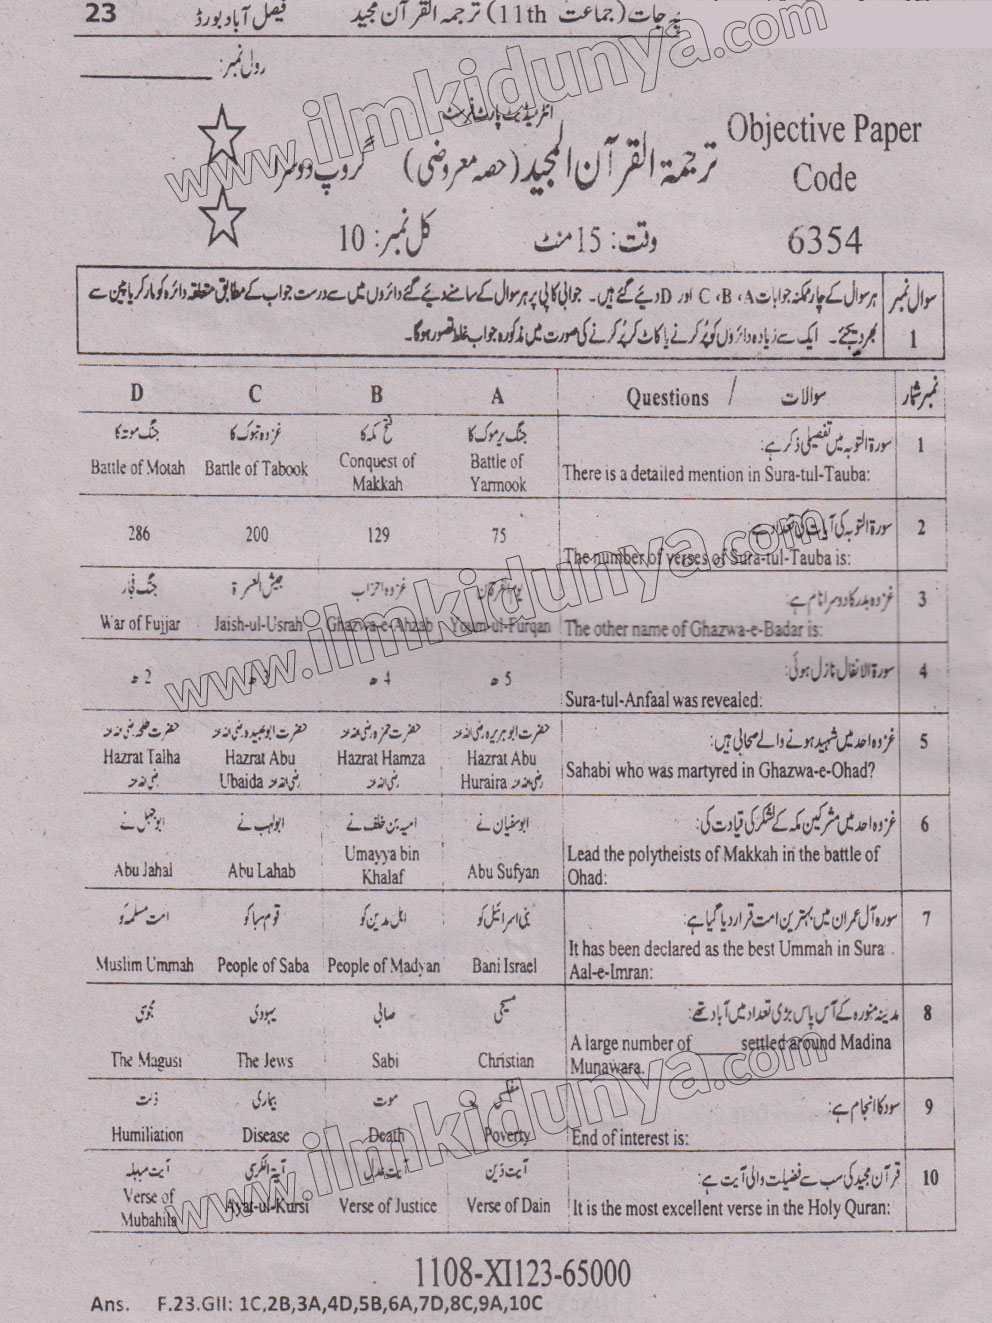 23 فیصل آباد بورڈ پرچہ جات (جماعت 11th) ترجمہ القرآن مجید
رول نمبر: ________
انٹرمیڈیٹ پارٹ فرسٹ
ترجمۃ القرآن المجید (حصہ معروضی) گروپ دوسرا
Objective Paper
Code
6354
وقت: 15 منٹ
کل نمبر: 10
سوال نمبر 1
ہر سوال کے چار ممکنہ جوابات A، B، C اور D دیئے گئے ہیں۔ جوابی کاپی پر ہر سوال کے سامنے دیئے گئے دائروں میں سے درست جواب کے مطابق متعلقہ دائرہ کو مارکر یا پین سے
بھر دیجئے۔ ایک سے زیادہ دائروں کو پُر کرنے یا کاٹ کر پُر کرنے کی صورت میں مذکورہ جواب غلط تصور ہوگا۔
نمبر شمار سوالات / Questions A B C D
1 سورۃ التوبہ میں تفصیلی ذکر ہے: جنگ یرموک کا فتح مکہ کا غزوہ تبوک کا جنگ موتہ کا
There is a detailed mention in Sura-tul-Tauba: Battle of Yarmook Conquest of Makkah Battle of Tabook Battle of Motah
2 سورۃ التوبہ کی آیات کی تعداد ہے
The number of verses of Sura-tul-Tauba is: 75 129 200 286
3 غزوہ بدر کا دوسرا نام ہے: یوم الفرقان غزوہ احزاب جیش العسرۃ جنگ فجار
The other name of Ghazwa-e-Badar is: Youm-ul-Furqan Ghazwa-e-Ahzab Jaish-ul-Usrah War of Fujjar
4 سورۃ الانفال نازل ہوئی: 5 ھ 4 ھ 3 ھ 2 ھ
Sura-tul-Anfaal was revealed:
5 غزوہ احد میں شہید ہونے والے صحابی ہیں: حضرت ابو ہریرہ رضی اللہ عنہ حضرت حمزہ رضی اللہ عنہ حضرت ابو عبیدہ رضی اللہ عنہ حضرت طلحہ رضی اللہ عنہ
Sahabi who was martyred in Ghazwa-e-Ohad? Hazrat Abu Huraira رضی اللہ عنہ Hazrat Hamza رضی اللہ عنہ Hazrat Abu Ubaida رضی اللہ عنہ Hazrat Talha رضی اللہ عنہ
6 غزوہ احد میں مشرکین مکہ کے لشکر کی قیادت کی: ابو سفیان نے امیہ بن خلف نے ابو لہب نے ابو جہل نے
Lead the polytheists of Makkah in the battle of Ohad: Abu Sufyan Umayya bin Khalaf Abu Lahab Abu Jahal
7 سورہ آل عمران میں بہترین امت قرار دیا گیا ہے: بنی اسرائیل کو اہل مدین کو قوم سبا کو امت مسلمہ کو
It has been declared as the best Ummah in Sura Aal-e-Imran: Bani Israel People of Madyan People of Saba Muslim Ummah
8 مدینہ منورہ کے آس پاس بڑی تعداد میں آباد تھے: مسیحی صابی یہودی مجوسی
A large number of _____ settled around Madina Munawara. Christian Sabi The Jews The Magusi
9 سود کا انجام ہے: مفلسی موت بیماری ذلت
End of interest is: Poverty Death Disease Humiliation
10 قرآن مجید کی سب سے فضیلت والی آیت ہے: آیت دَین آیت عدل آیۃ الکرسی آیت مباہلہ
It is the most excellent verse in the Holy Quran: Verse of Dain Verse of Justice Ayat-ul-Kursi Verse of Mubahila
1108-XI123-65000
Ans. F.23.GII: 1C,2B,3A,4D,5B,6A,7D,8C,9A,10C
www.ilmkidunya.com
www.ilmkidunya.com
www.ilmkidunya.com